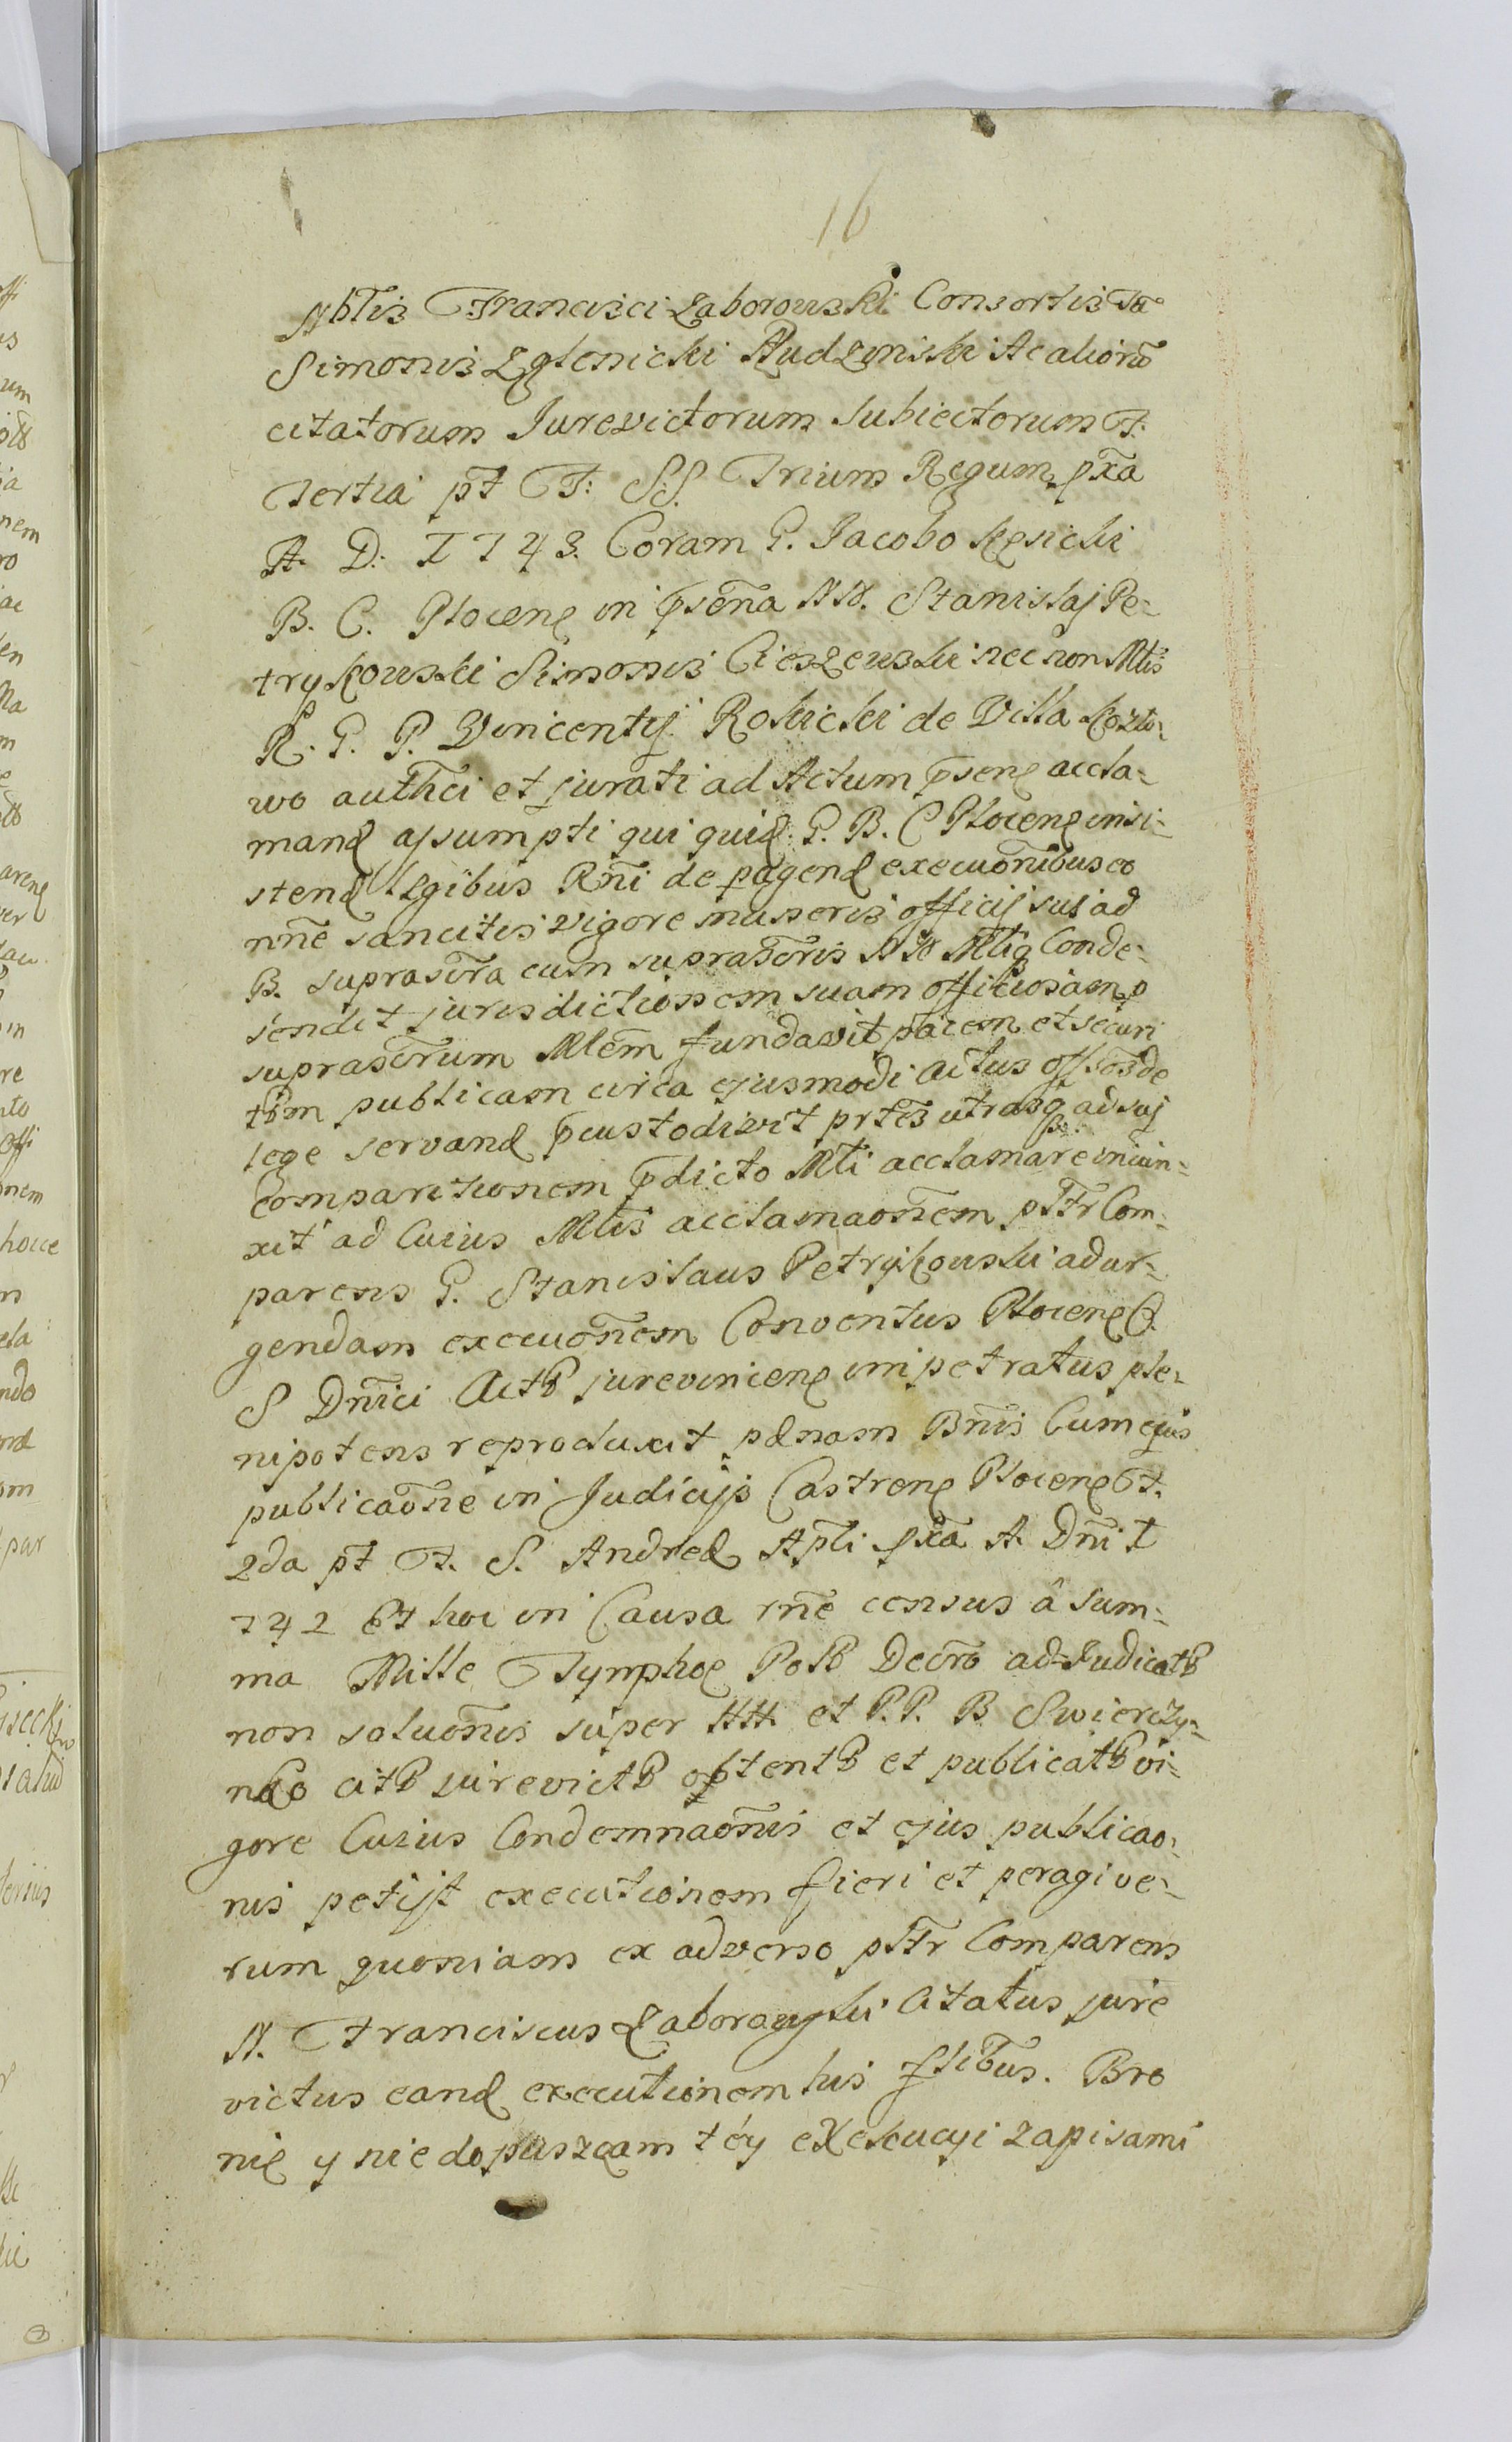 16
Nblis Francisci Zaborowski Consortis Ta
Simonis Zglenicki Rudzinski Ac aliorũ
citatorum Iurevictorum subiectorum F.
Tertia pt F: SS. Trium Regum pxa
A. D. I743. Coram G. Iacobo Kęsicki
B. C. Plocen in pseña NN. Stanislaj Pe-
trykowski Simonis Cieszewski nec non Mlis
R. G. P. Vincentij Rokicki de Villa Kozło-
wo authci et jurati ad Actum psen accla-
mand assumpti qui quid. G. B. C Plocen insi-
stend Legibus Rñi de pagend execuõnibus eo
nñe sancitis vigore muneris officij sui ad
B. suprascra cum suprascris NN Mliq Conde-
sendit jurisdictionem suam officiosam p
suprascrum Mlem fundavit pacem et securi
tem publicam circa ejusmodi actus offõs de
lege servand pcustodivit prtes utrasq ad suj
comparitionem pdicto Mli acclamare iniun-
xit ad Cuius Mlis acclamaõnem psltr Com-
parens G. Stanislaus Petrykowski ad ur-
gendam execuõnem Conventus Plocen O.
S Dñici ActB jurevincen impetratus ple-
nipotens reproduxit pdnam Bnis Cum ejus
publicaõne in Judicijs Castren Plocen F.
2da pt F. S. Andreæ Apli pxa A. Dñi I
742 Et hoc in Causa rñe census â sum-
ma Mille Tympho PolB Decro ad-JudicatB
non soluõnis super HH. et P.P. B Swierczy-
nko citB jurevictB obtentB et publicatB vi-
gore Cuius Condemnaõnis et ejus publicao-
nis petijt executionem fieri et peragi ve-
rum quoniam ex adverso psltr Comparens
N. Franciscus Zaborowski Citatus jure
victus eand executionem his stibus. Bro
nię y nie dopuszcam téy exekucyi zapisami